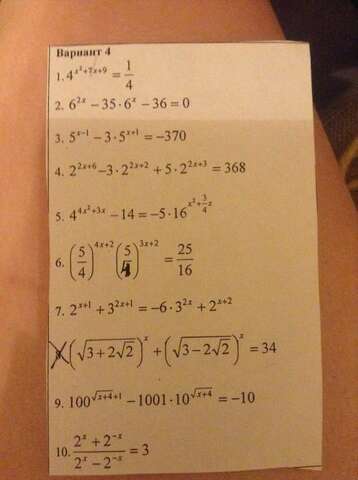 Вариант 4
1. 4^{x²+7x+9} = 1/4
2. 6^{2x} − 35·6^x − 36 = 0
3. 5^{x−1} − 3·5^{x+1} = −370
4. 2^{2x+6} − 3·2^{2x+2} + 5·2^{2x+3} = 368
5. 4^{4x²+3x} − 14 = −5·16^{x²+\frac{3}{4}x}
6. (5/4)^{4x+2} (5/4)^{3x+2} = 25/16
7. 2^{x+1} + 3^{2x+1} = −6·3^{2x} + 2^{x+2}
8. (√(3+2√2))^x + (√(3−2√2))^x = 34
9. 100^{√(x+4)+1} − 1001·10^{√(x+4)} = −10
10. (2^x + 2^{−x})/(2^x − 2^{−x}) = 3